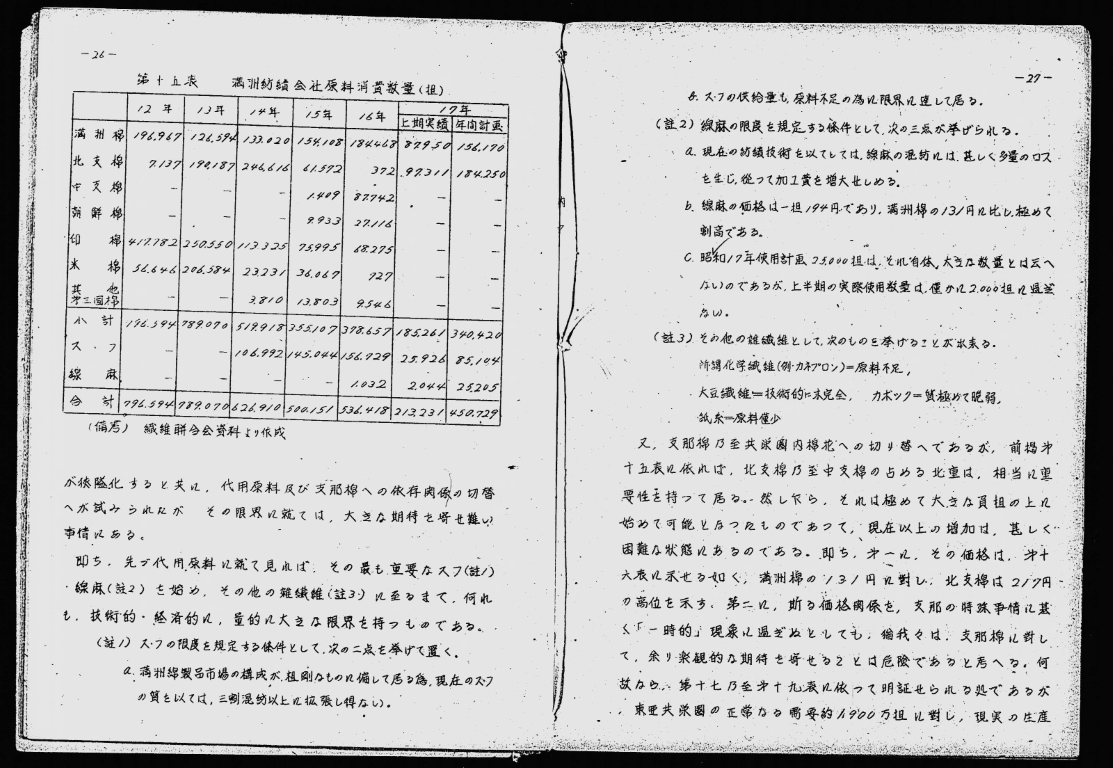 －26－
第十五表　満洲紡績会社原料消費数量(担)
12年 13年 14年 15年 16年 17年
上期実績 年间計画
満洲棉 196.967 126.594 133.020 154.108 184.468 87.950 156.170
北支棉 7.137 190.187 246.616 61.572 372 97.311 184.250
中支棉 － － － 1.409 87.742 － －
朝鮮棉 － － － 9.933 27.116 － －
印棉 417.782 250.550 113.325 75.995 68.275 － －
米棉 56.646 206.584 23.231 36.067 727 － －
其他第三国棉 － － 3.810 13.803 9.546 － －
小計 796.594 789.070 519.918 355.107 378.657 185.261 340.420
ス・フ － － 106.992 145.044 156.729 25.926 85.104
線麻 － － － 1.032 2.044 25.205
合計 796.594 789.070 626.910 500.151 536.418 213.231 450.729
(備考) 繊維聯合会資料より作成
が深隘化すると共に、代用原料及び支那棉への依存関係の切替
へが試みられたが その限界に就ては、大きな期待を寄せ難い
事情にある。
即ち、先づ代用原料に就て見れば その最も重要なスフ(註1)
・線麻(註2)を始め、その他の雑繊維(註3)に至るまで、何れ
も、技術的・経済的に、量的に大きな限界を持つものである。
(註1) ス・フの限度を規定する條件として、次の二点を挙げて置く。
a. 満洲綿製品市場の構成が、粗剛なものに偏して居る為、現在のスフ
の質を以ては、三割混紡以上に拡張し得ない。
－27－
b. ス・フの供給量も、原料不足の為に限界に達して居る。
(註2) 線麻の限度を規定する條件として、次の三点が挙げられる。
a. 現在の紡績技術を以てしては、線麻の混紡には、甚しく多量のロス
を生じ、従つて加工費を増大せしめる。
b. 線麻の価格は一担194円であり、満洲棉の131円に比し極めて
割高である。
c. 昭和17年使用計画25.000担は、それ自体、大きな数量とは云へ
ないのであるが、上半期の実際使用数量は、僅かに2.000担に過ぎ
ない。
(註3) その他の雑繊維として、次のものを挙げることが出来る。
所謂化学繊維(例・カネプロン)＝原料不足、
大豆繊維＝技術的に未完全、 カポック＝質極めて脆弱、
紙糸＝原料僅少
又、支那棉乃至共栄圏内棉花への切り替へであるが、前掲第
十五表に依れば、北支棉乃至中支棉の占める比重は、相当に重
要性を持つて居る。然し乍ら、それは極めて大きな負担の上に
始めて可能となつたものであつて、現在以上の増加は、甚しく
困難な状態にあるのである。即ち、第一に、その価格は、第十
六表に示せる如く、満洲棉の131円に対し、北支棉は217円
の高位を示す。第二に、斯る価格関係を、支那の特殊事情に基
く「一時的」現象に過ぎぬとしても、尚我々は、支那棉に対し
て、余り楽観的な期待を寄せることは危険であると考へる。何
故なら、第十七乃至第十九表に依つて明証せられる処であるが
、東亜共栄圏の正常なる需要約1,900万担に対し、現実の生産